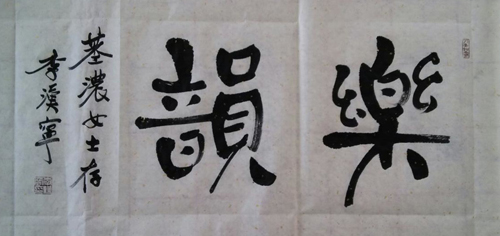 樂韻
基濃女士存
李漢寧